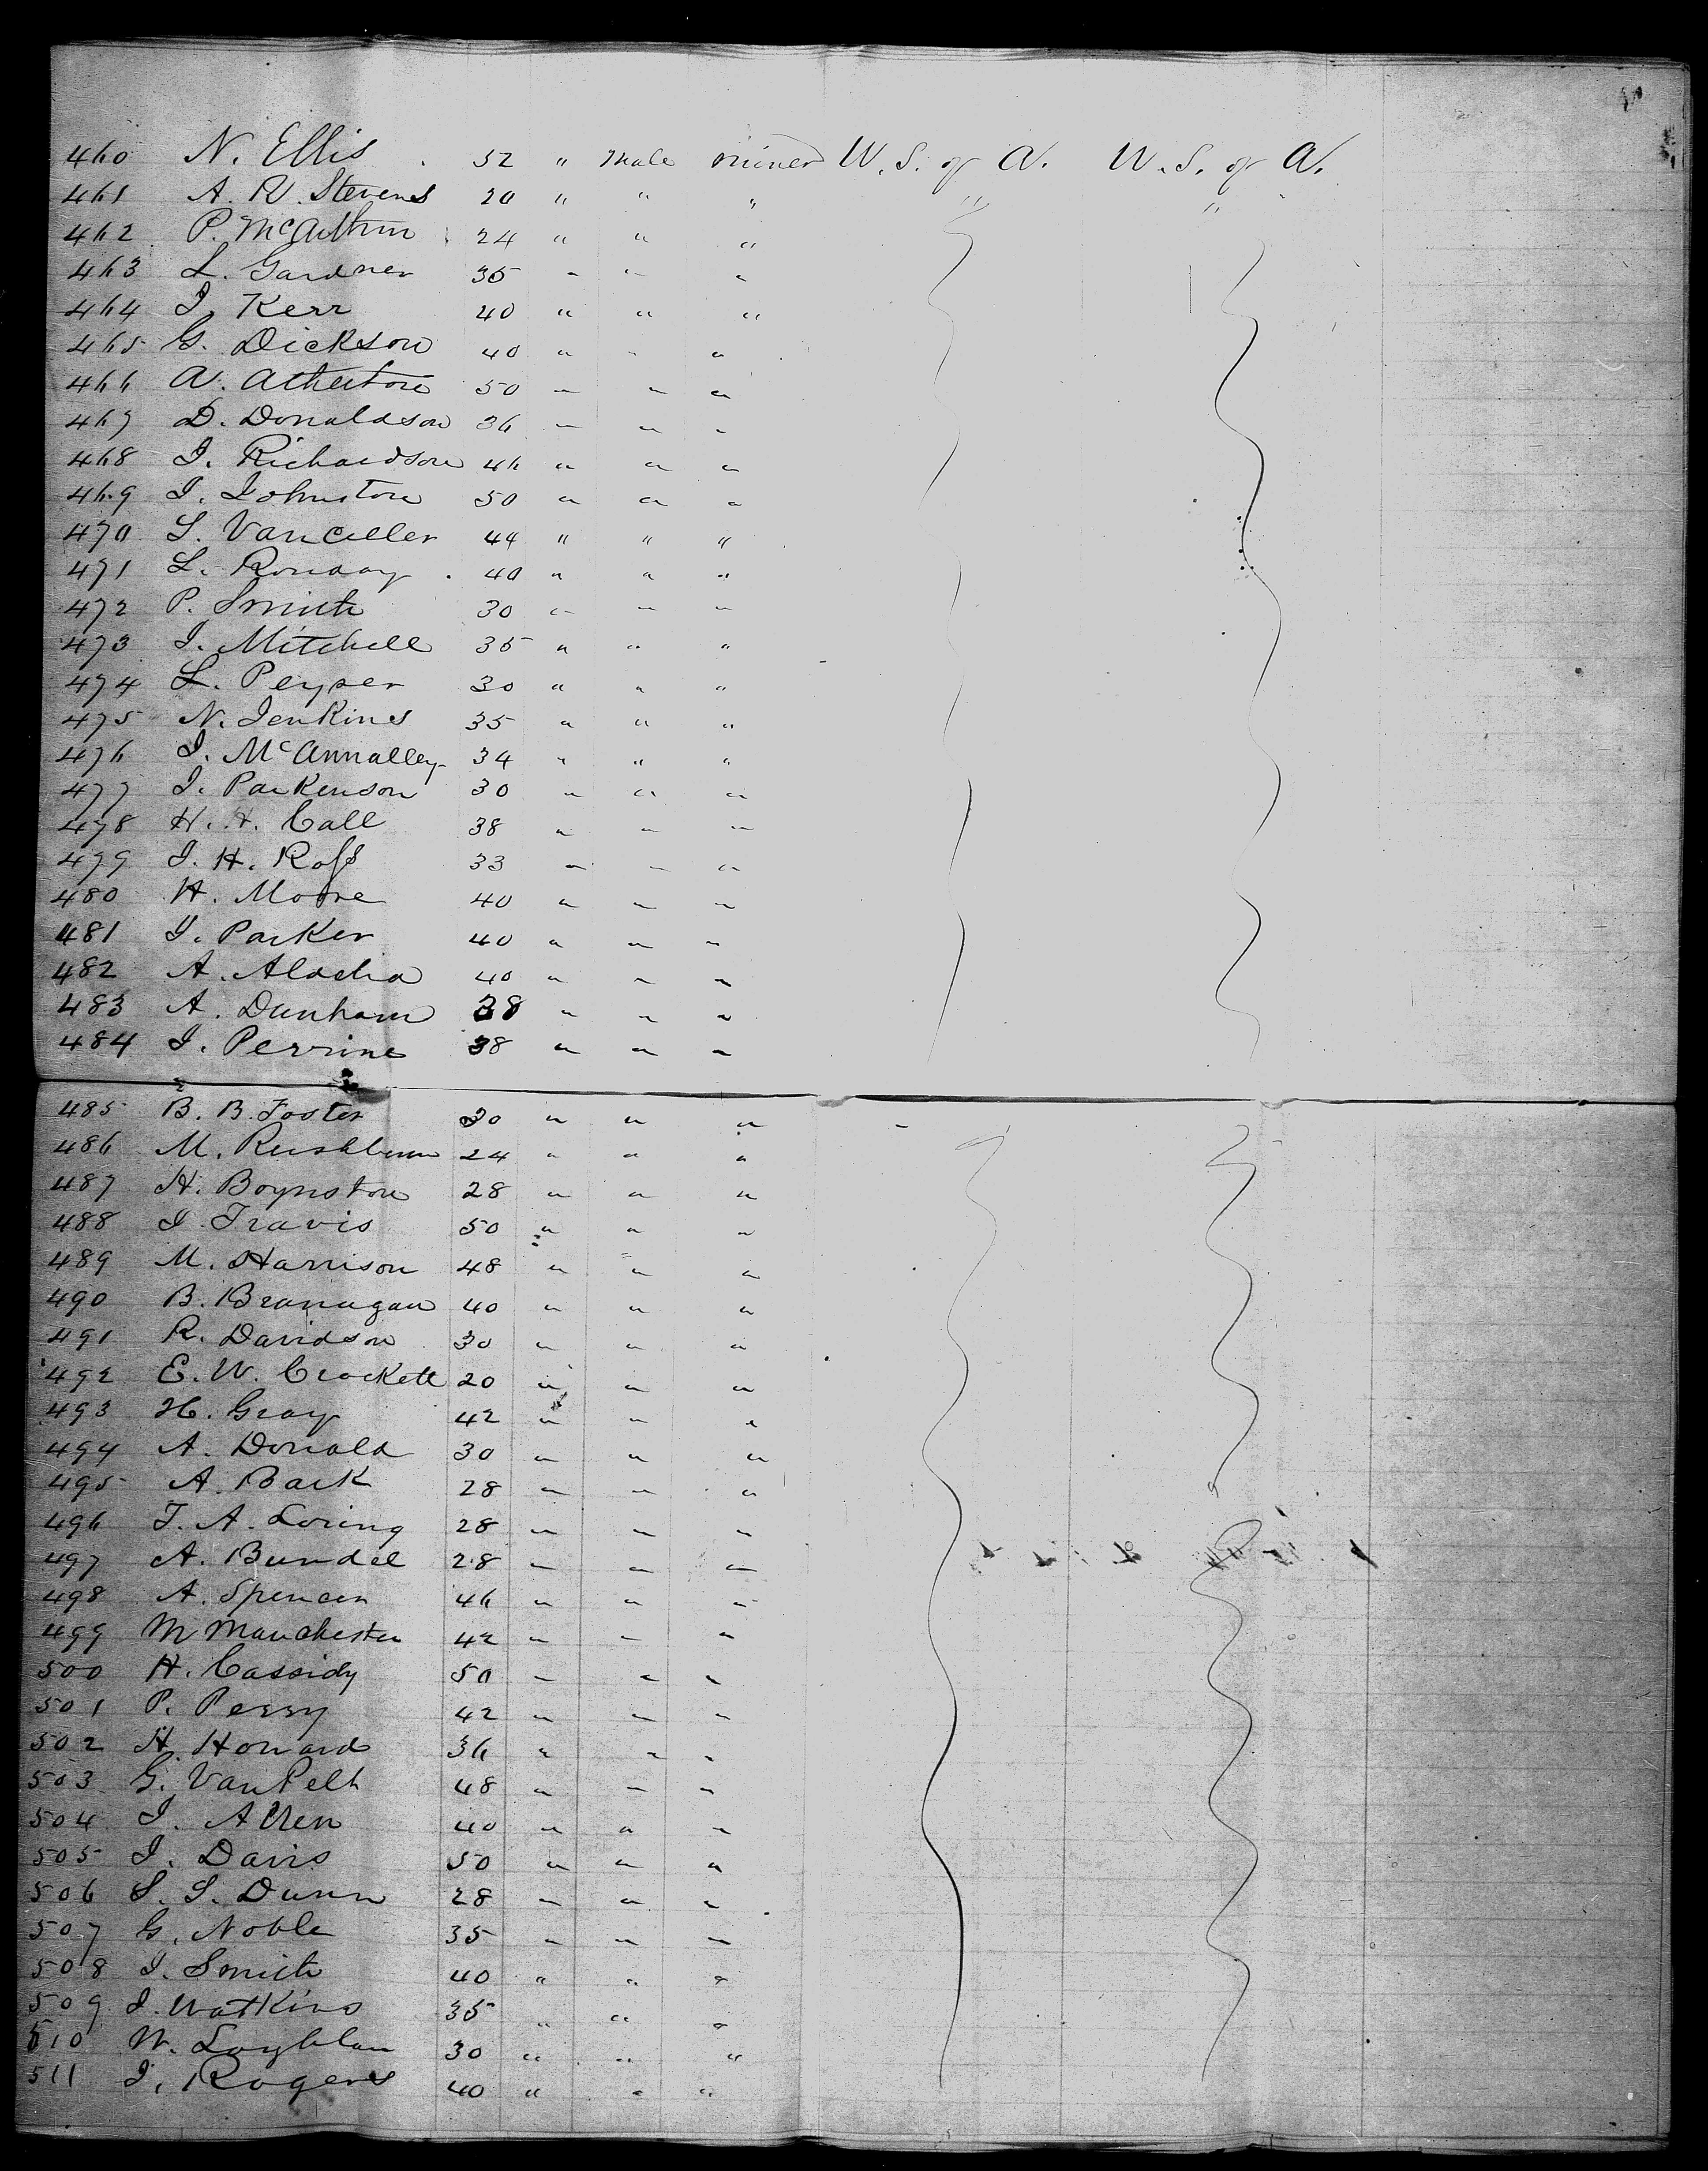 460 N. Ellis 32 " Male Miner U. S. of A. U. S. of A.
461 A. R. Stevens 20 " " " " "
462 P. McArthur 24 " " "
463 L. Gardner 35 " " "
464 J. Kerr 40 " " "
465 G. Dickson 40 " " "
466 A. Atherton 50 " " "
467 D. Donaldson 36 " " "
468 J. Richardson 46 " " "
469 J. Johnston 50 " " "
470 S. Vanceller 44 " " "
471 L. Ronday 40 " " "
472 P. Smith 30 " " "
473 J. Mitchell 35 " " "
474 L. Peyser 30 " " "
475 N. Jenkins 35 " " "
476 J. McAnnalley 34 " " "
477 J. Parkenson 30 " " "
478 H. H. Call 38 " " "
479 J. H. Ross 33 " " "
480 H. Moore 40 " " "
481 J. Parker 40 " " "
482 A. 40 " " "
483 A. Dunham 38 " " "
484 J. Perrine 38 " " "
485 B. B. Foster 30 " " "
486 M. Rushburn 24 " " "
487 H. Boynston 28 " " "
488 J. Travis 50 " " "
489 M. Harrison 48 " " "
490 B. Branagan 40 " " "
491 R. Davidson 30 " " "
492 E. W. Crockett 20 " " "
493 H. Gray 42 " " "
494 A. Donald 30 " " "
495 A. Back 28 " " "
496 T. A. Loring 28 " " "
497 A. Bundel 28 " " "
498 A. Spencer 46 " " "
499 M Manchester 42 " " "
500 H. Cassidy 50 " " "
501 P. Perry 42 " " "
502 H. Howard 36 " " "
503 G. VanPelt 48 " " "
504 J. Allen 40 " " "
505 J. Davis 50 " " "
506 S. S. Dunn 28 " " "
507 G. Noble 35 " " "
508 J. Smith 40 " " "
509 J. Watkins 35 " " "
510 W. 30 " " "
511 J. Rogers 40 " " "